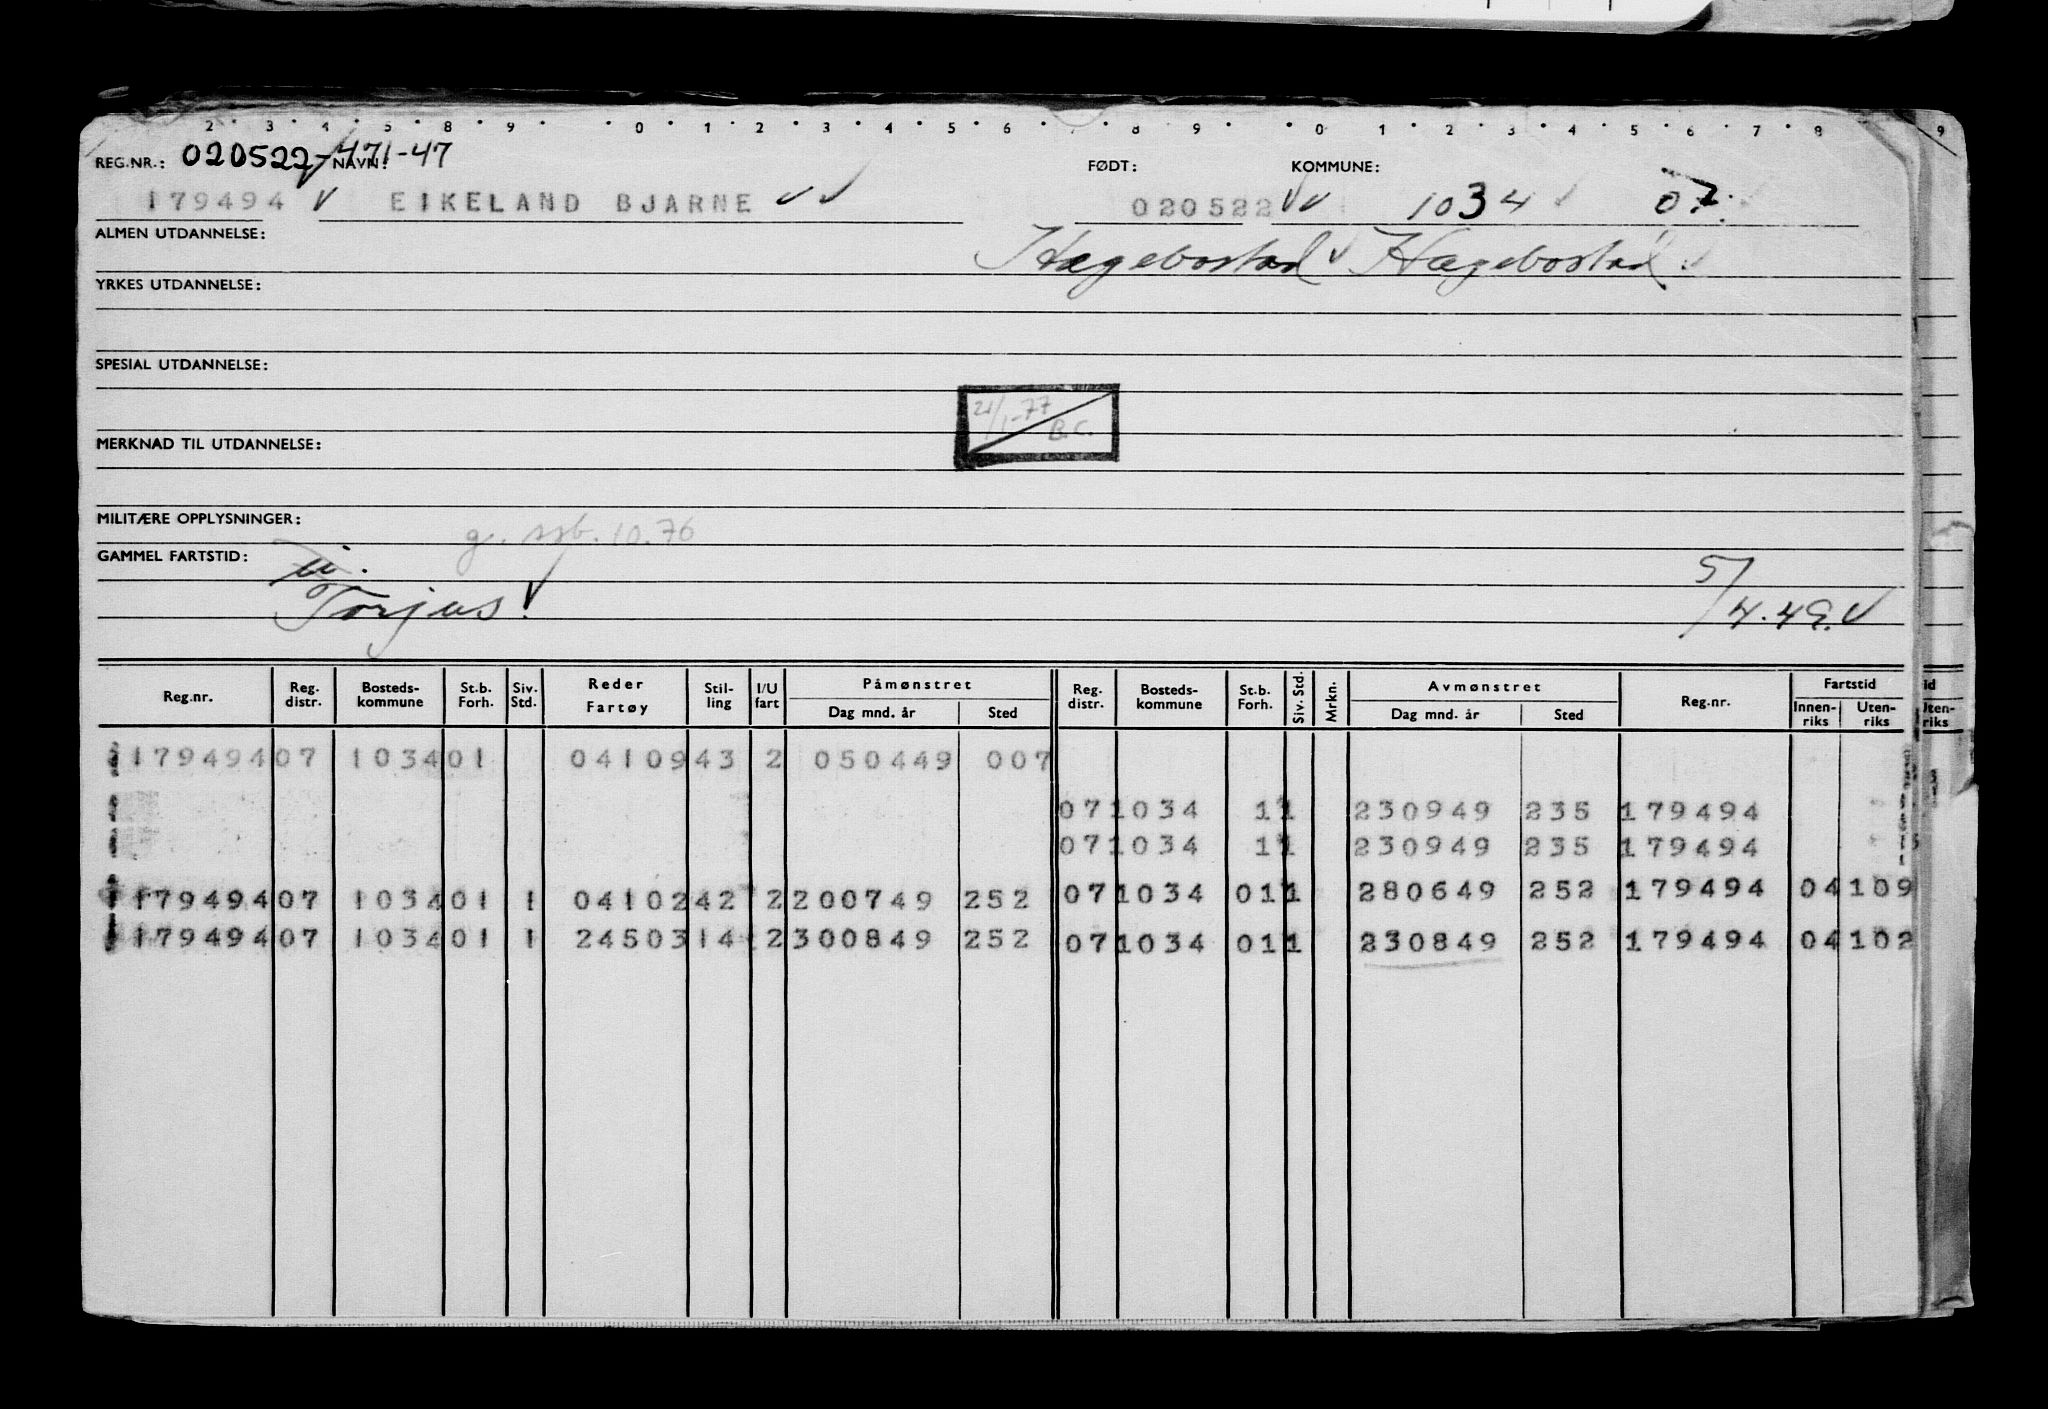 2 · 3 · 4 · 5 · 8 · 9 · · 0 · 1 · 2 · 3 · 4 · 5 · 6 · 7 · 8 · 9 · · 0 · 1 · 2 · 3 · 4 · 5 · 6 · 7 · 8 9
REG.NR.: 020522-471-47 NAVN: FØDT: KOMMUNE:
179494 V EIKELAND BJARNE V V 020522 V V 1034 V 07.
ALMEN UTDANNELSE: Hægebostad V Hægebostad. V
YRKES UTDANNELSE:
SPESIAL UTDANNELSE:
21/1-77 B.C.
MERKNAD TIL UTDANNELSE:
MILITÆRE OPPLYSNINGER: g. sjb. 10.76
GAMMEL FARTSTID:
Torjus. V 5/4.49. V
Reg.nr. Reg. distr. Bosteds-kommune St.b. Forh. Siv. Std. Reder Fartøy Stil-ling I/U fart Påmønstret Dag mnd. år Sted Reg. distr. Bosteds-kommune St.b. Forh. Siv. Std. Mrkn. Avmønstret Dag mnd. år Sted Reg.nr. Fartstid Innen-riks Uten-riks
179494 07 1034 01 04109 43 2 050449 007
07 1034 1 1 230949 235 179494
07 1034 1 1 230949 235 179494
179494 07 1034 01 1 04102 42 2 200749 252 07 1034 01 1 280649 252 179494 04109
179494 07 1034 01 1 24503 14 2 300849 252 07 1034 01 1 230849 252 179494 04102